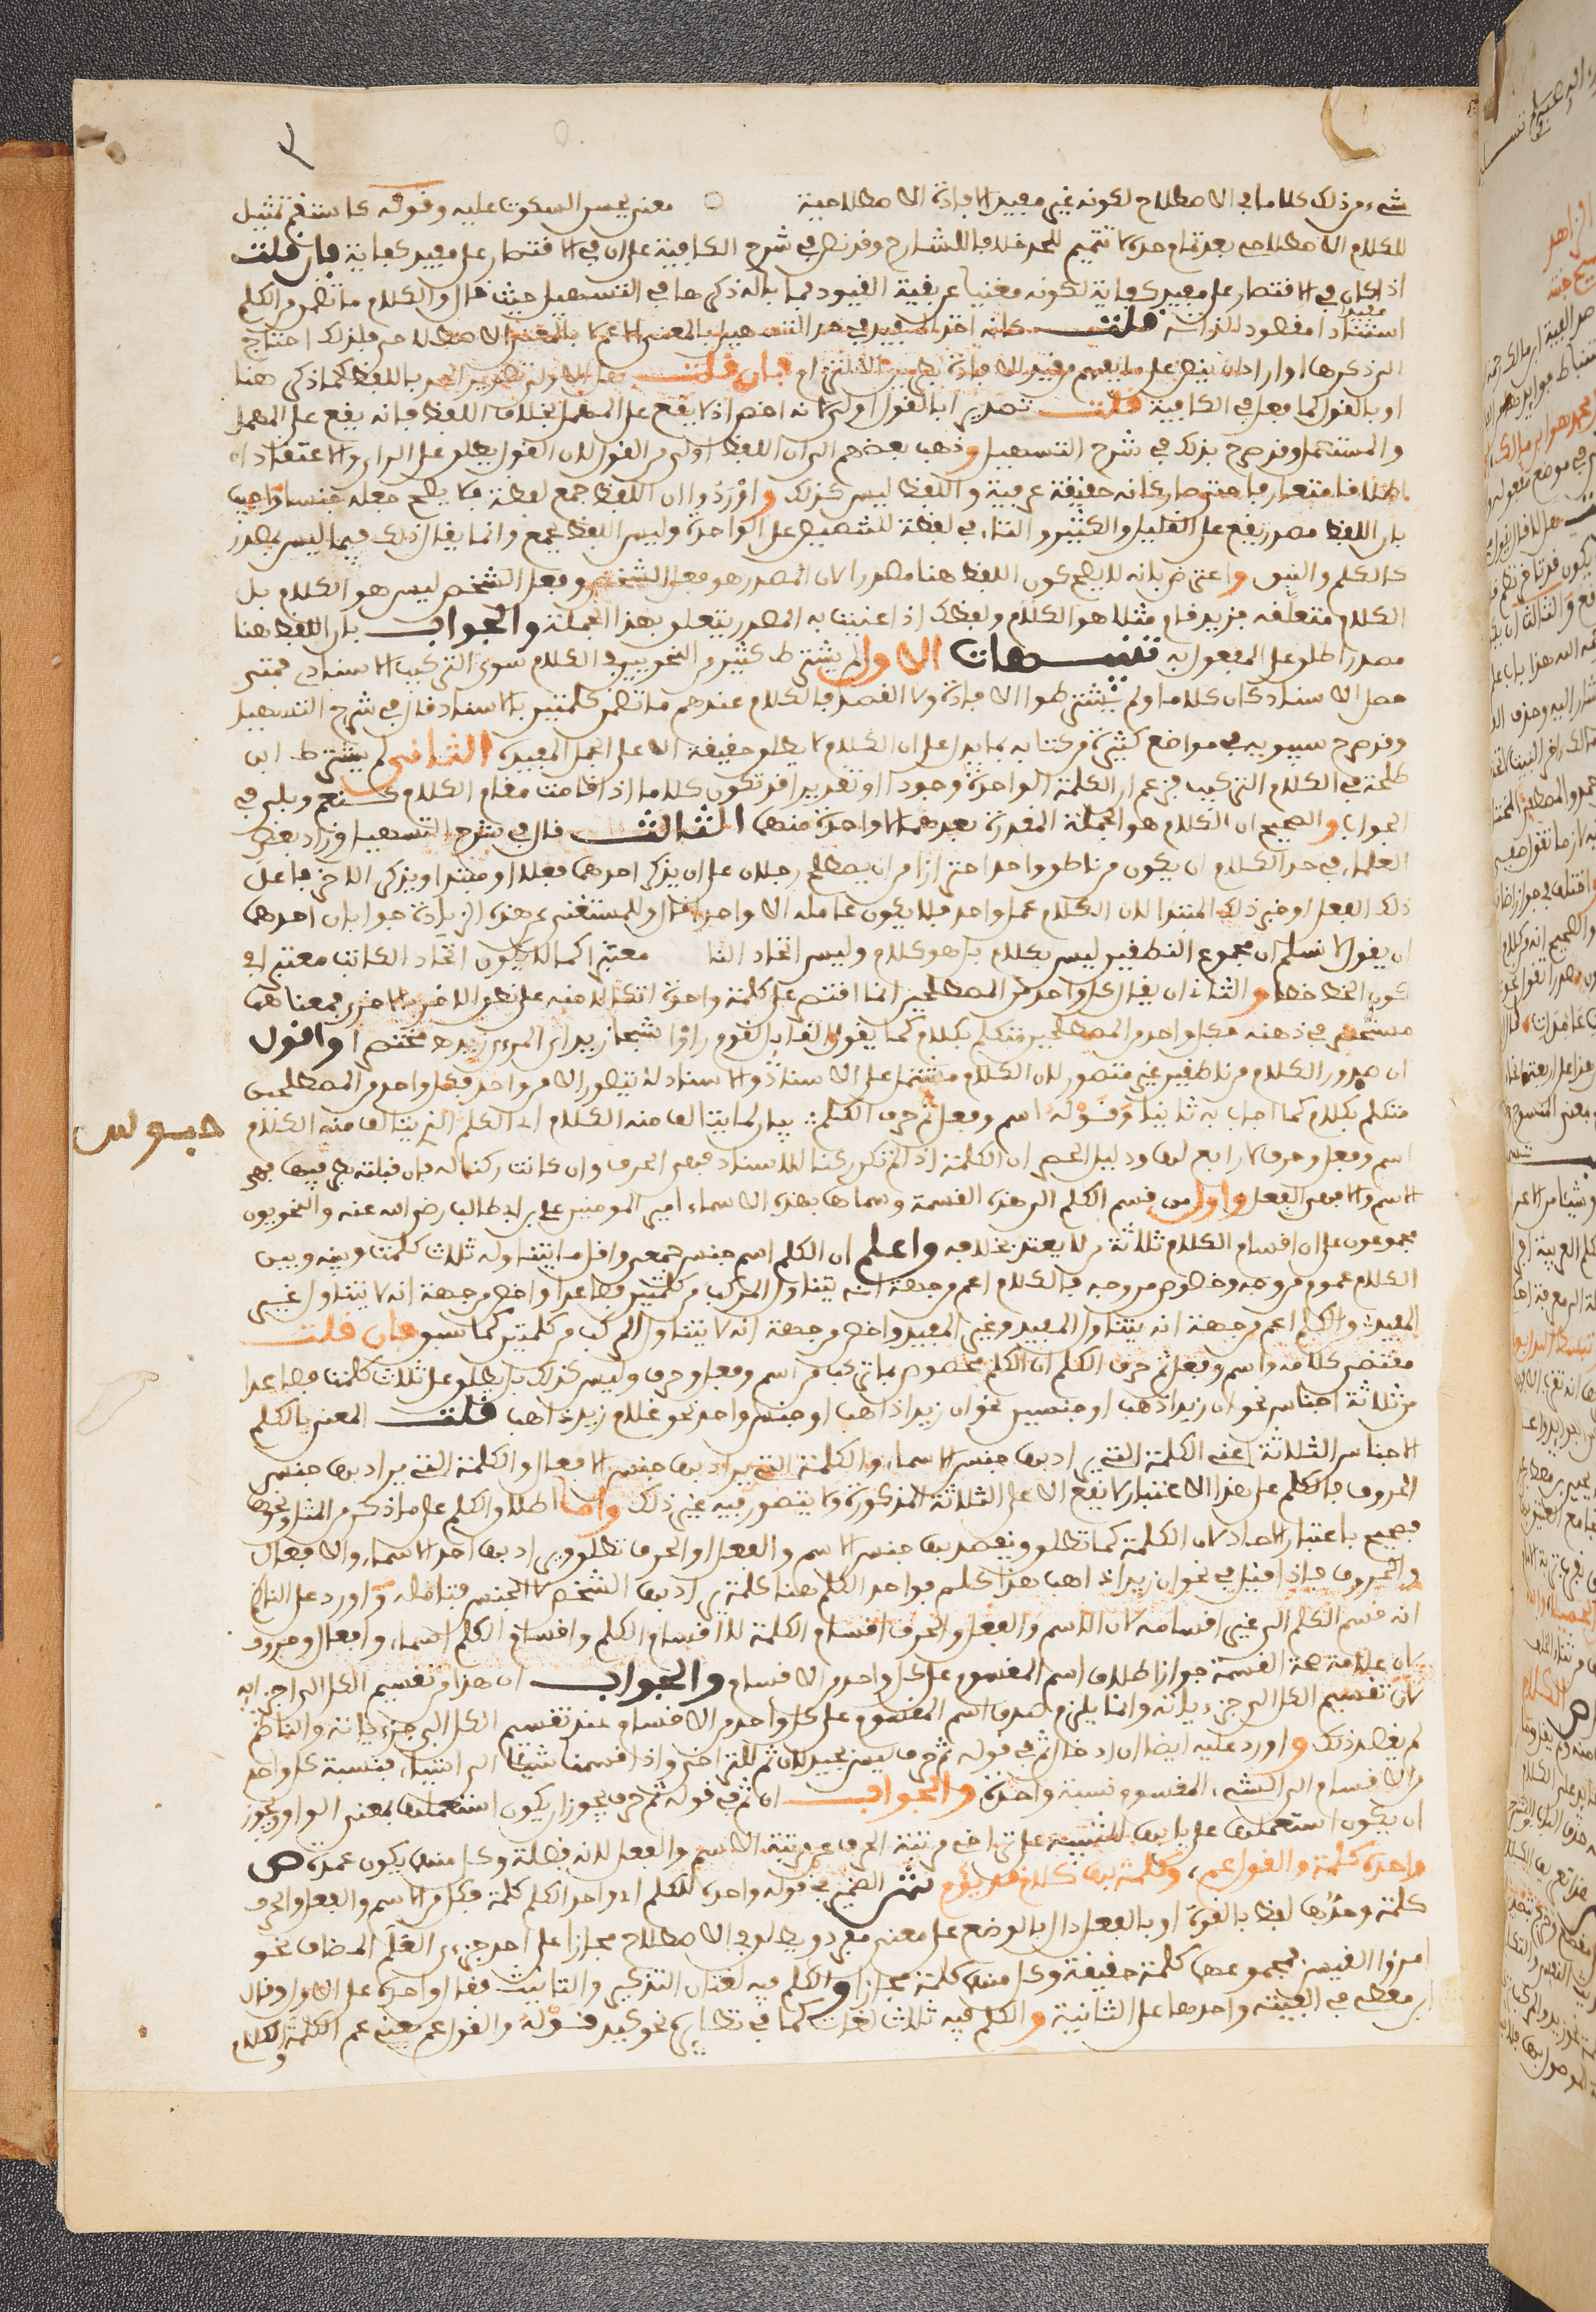 ٣
شيء من ذلك كلاما في الاصطلاح لكونه غير مفيد الافادة الاصطلاحية معنى يحسن السكوت عليه وقوله كاستقم تمثيل
للكلام الاصطلاحي بعد تمام حده لا تتميم للحد خلافا للشارح وقد نص في شرح الكافية على ان في الاقتصار على مفيد كفاية فان قلت
اذا كان في الاقتصار على مفيد كفاية لكونه مغنيا عن بقية القيود فما باله ذكرها في التسهيل حيث قال والكلام ما تضمن من الكلم
اسنادا مفيدا مقصودا لذاته قلت كانه اخذ المفيد في حد التسهيل بالمعنى الاعم لا بالمعنى الاصطلاحي فلذلك احتاج
الى ذكرها او اراد ان ينص على ما يفهم مفيد الافادة بطريق الالتزام فان قلت هل الاولى تصدير الحد باللفظ كما ذكر هنا
او بالقول كما فعل في الكافية قلت تصديره بالقول اولى لانه اخص اذ لا يقع على المهمل بخلاف اللفظ فانه يقع على المهمل
والمستعمل وقد صرح بذلك في شرح التسهيل وذهب بعضهم الى ان اللفظ اولى من القول لان القول يطلق على الراي والاعتقاد
اطلاقا متعارفا حتى صار كانه حقيقة عرفية واللفظ ليس كذلك واوردوا ان اللفظ جمع لفظة فلا يصح جعله جنسا واجيب
بان اللفظ مصدر يقع على القليل والكثير والتاء في لفظة للتنصيص على الواحدة وليس اللفظ بجمع وانما يقال ذلك فيما ليس بمصدر
كالكلم والنبق واعترض بانه لا يصح كون اللفظ هنا مصدرا لان المصدر هو فعل الشخص وفعل الشخص ليس هو الكلام بل
الكلام متعلقه فزيد قام مثلا هو الكلام ولفظك اذا عنيت به المصدر يتعلق بهذا الجملة والجواب بان اللفظ هنا
مصدر اطلق على المفعول به تنبيهات الاول لم يشترط كثير من النحويين في الكلام سوى التركيب الاسنادي فمتى
حصل الاسناد كان كلاما ولم يشترطوا الافادة ولا القصد فالكلام عندهم ما تضمن كلمتين بالاسناد قال في شرح التسهيل
وقد صرح سيبويه في مواضع كثيرة من كتابه بما يدل على ان الكلام لا يطلق حقيقة الا على الجمل المفيدة الثاني لم يشترط ابن
طلحة في الكلام التركيب فزعم ان الكلمة الواحدة وجودا او تقديرا قد تكون كلاما اذا قامت مقام الكلام كنعم وبلى في
الجواب والصحيح ان الكلام هو الجملة المقدرة بعدهما لا واحدة منهما الثالث قال في شرح التسهيل وزاد بعض
العلماء في حد الكلام ان يكون من ناطق واحد احترازا من ان يصطلح رجلان على ان يذكر احدهما فعلا او مبتدا ويذكر الاخر فاعل
ذلك الفعل او خبر ذلك المبتدا لان الكلام عمل واحد فلا يكون عامله الا واحدا قال وللمستغني عن هذه الزيادة جوابان احدهما
ان يقول لا نسلم ان مجموع النطقين ليس بكلام بل هو كلام وليس اتحاد النا معتبرا كما لا يكون اتحاد الكاتب معتبرا في
كون الخط خطا والثاني ان يقال كل واحد من المصطلحين انما اقتصر على كلمة واحدة اتكالا منه على نطق الاخر بالاخرى فمعناهما
مستحضر في ذهنه فكل واحد من المصطلحين متكلم بكلام كما يقول القايل لقوم راوا شبحا زيد اي المرءي زيد مختصرا واقول
ان صدور الكلام من ناطقين غير متصور لان الكلام مشتمل على الاسناد والاسناد لا يتصور الا من واحد فكل واحد من المصطلحين
متكلم بكلام كما اجاب به ثانيا وقوله اسم وفعل ثم حرف الكلم بيان لما يتالف منه الكلام اي الكلم الذي يتالف منه الكلام
حبوس
اسم وفعل وحرف لا رابع لها ودليل الحصر ان الكلمة اذا لم تكن ركنا للاسناد فهي الحرف وان كانت ركنا له فان قبلته بطرفيها فهي
الاسم والا فهي الفعل واول من قسم الكلم الى هذه القسمة وسماها بهذه الاسماء امير المومنين علي بن ابي طالب رضي الله عنه والنحويون
مجموعون على ان اقسام الكلام ثلاثة من لا يعتد بخلافه واعلم ان الكلم اسم جنس جمعي واقل ما يتناوله ثلاث كلمات وبينه وبين
الكلام عموم من وجه وخصوص من وجه فالكلام اعم من جهة انه يتناول المركب من كلمتين فصاعدا واخص من جهة انه لا يتناول غير
المفيد والكلم اعم من جهة انه يتناول المفيد وغير المفيد واخص من جهة انه لا يتناول المركب من كلمتين كما سبق فان قلت
مقتضى كلامه واسم وفعل ثم حرف الكلم ان الكلم مخصوص بما تركب من اسم وفعل وحرف وليس كذلك بل يطلق على ثلاث كلمات فصاعدا
من ثلاثة اجناس نحو ان زيدا ذهب او جنسين نحو ان زيدا ذاهب او جنس واحد نحو غلام زيد ذاهب قلت المعني بالكلم
الاجناس الثلاثة اعني الكلمة التي يراد بها جنس الاسماء والكلمة التي يراد بها جنس الافعال والكلمة التي يراد بها جنس
الحروف فالكلم على هذا الاعتبار لا يقع الا على الثلاثة المذكورة ولا يتصور فيه غير ذلك واما اطلاق الكلم على ما ذكر من المثل ونحوها
فصحيح باعتبار الاحاد لان الكلمة كما تطلق ويقصد بها جنس الاسم والفعل او الحرف تطلق ويراد بها احد الاسماء والافعال
والحروف فاذا قيل في نحو ان زيدا ذاهب هذا كلم فواحد الكلم هنا كلمة يراد بها الشخص لا الجنس فتامله واورد على الناظم
انه قسم الكلم الى غير اقسامه لان الاسم والفعل والحرف اقسام الكلمة لا اقسام الكلم واقسام الكلم اسماء وافعال وحروف
لان علامة صحة القسمة جواز اطلاق اسم المقسوم على كل واحد من الاقسام والجواب ان هذا من تقسيم الكل الى اجزايه
لان تقسيم الكل الى جزءياته وانما يلزم صدق اسم المقسوم على كل واحد من الاقسام عند تقسيم الكل الى جزءياته والناظم
لم يقصد ذلك واورد عليه ايضا ان ادخال ثم في قوله ثم حرف ليس بجيد لان ثم للتراخي واذا قسمنا شيئا الى اشياء فنسبة كل واحد
من الاقسام الى الشيء المقسوم نسبة واحدة والجواب ان ثم في قوله ثم حرف يجوز ان يكون استعملها بمعنى الواو ويجوز
ان يكون استعملها على بابها للتنبيه على تراخي مرتبة الحرف عن مرتبة الاسم والفعل لانه فضلة وكل منهما يكون عمدة ص
واحده كلمة والقول عم وكلمة بها كلام قد يؤم ش الضمير في قوله واحده للكلم اي واحد الكلم كلمة فكل من الاسم والفعل والحرف
كلمة وحدها لفظ بالقوة او بالفعل دال بالوضع على معنى مفرد ويطلق في الاصطلاح مجازا على احد جزءي العلم المضاف نحو
امرؤا القيس فمجموعهما كلمة حقيقة وكل منهما كلمة مجازا والكلم فيه لغتان التذكير والتانيث فقال واحده على الاولى وقال
ابن معطي في الفيته واحدها على الثانية والكلم فيه ثلاث لغات كما في نظايره نحو كبد قوله والقول عم يعني عم الكلمة والكلام